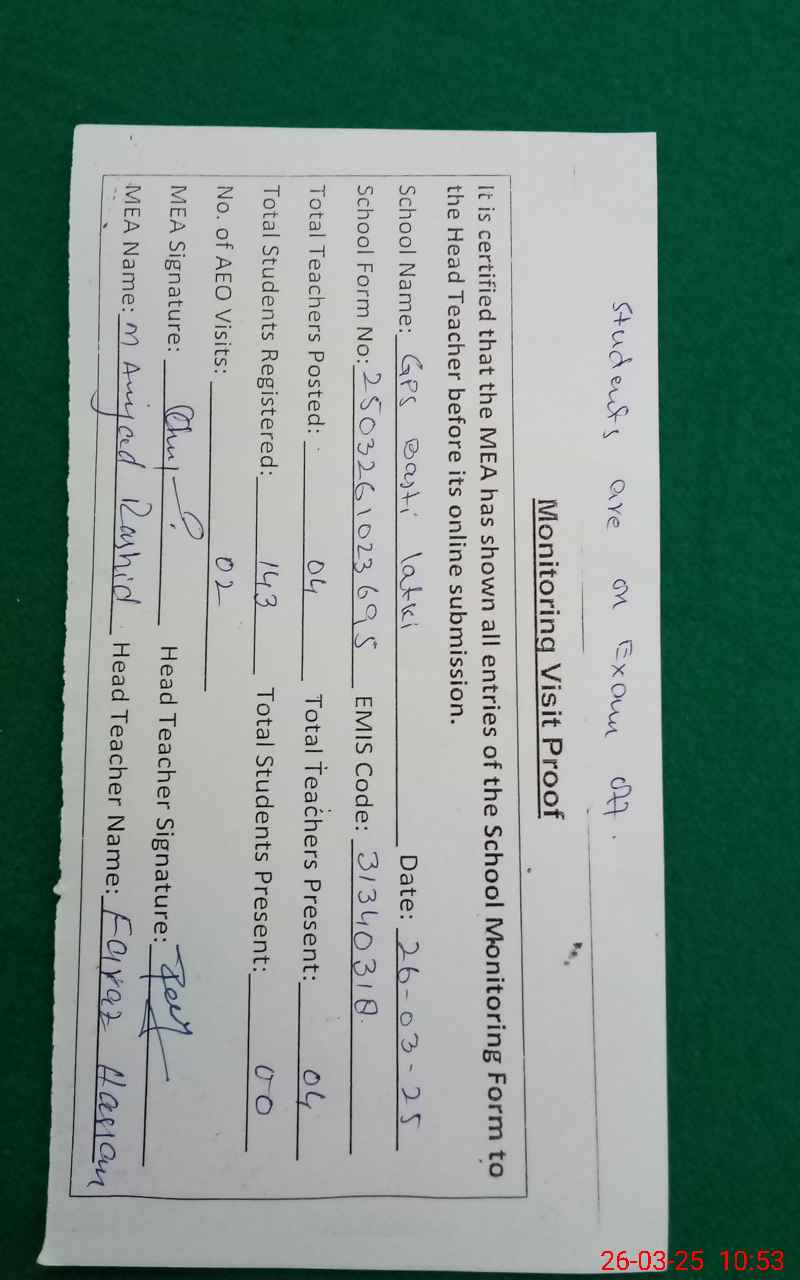 Students are on Exam off.
Monitoring Visit Proof
It is certified that the MEA has shown all entries of the School Monitoring Form to
the Head Teacher before its online submission.
School Name: GPS Basti latki Date: 26-03-25
School Form No: 2503261023695 EMIS Code: 31340318
Total Teachers Posted: 04 Total Teachers Present: 04
Total Students Registered: 143 Total Students Present: 00
No. of AEO Visits: 02
MEA Signature: Head Teacher Signature:
MEA Name: M Amjad Rashid Head Teacher Name: Faraz Hassan
26-03-25 10:53